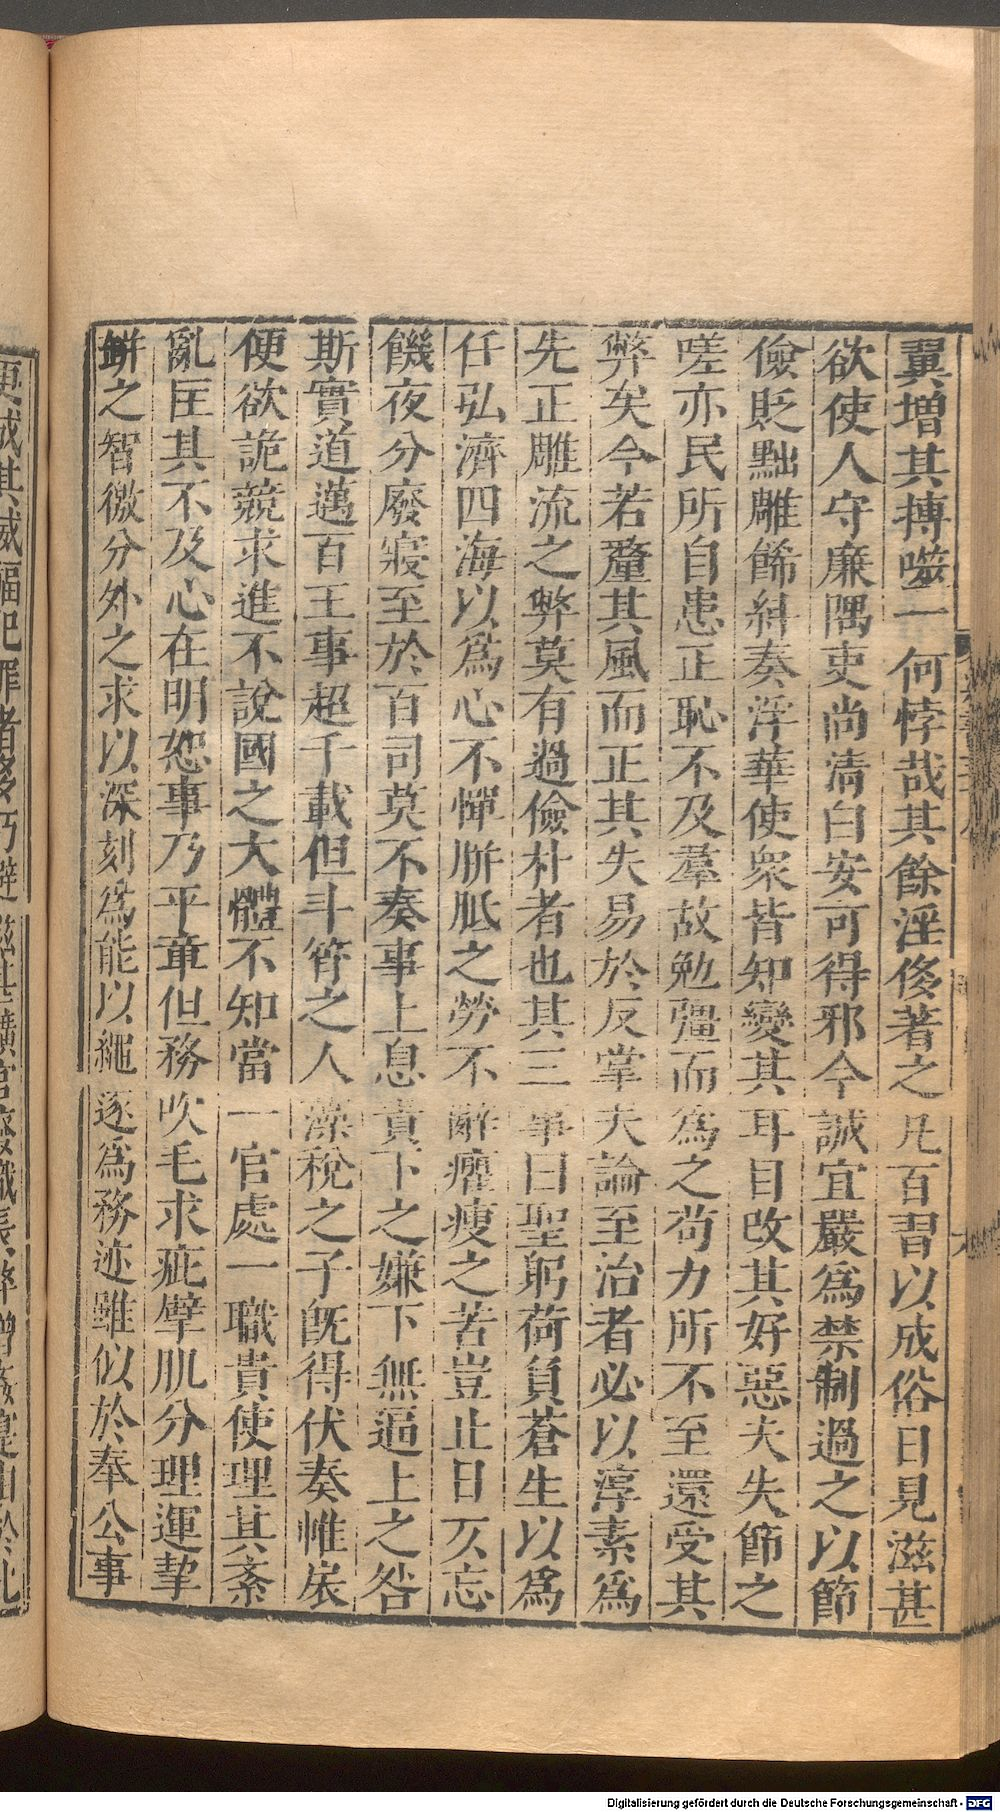 翼增其搏噬一何悖哉其餘淫侈著之凡百習以成俗日見滋甚
欲使人守廉隅吏尚清白安可得邪今誠宜嚴為禁制過之以節
儉貶黜雕餙糾奏浮華使衆皆知變其耳目改其好惡夫失節之
嗟亦民所自患正恥不及羣故勉彊而為之苟力所不至還受其
弊矣今若釐其風而正其失易於反掌夫論至治者必以淳素為
先正雕流之弊莫有過儉朴者也其三事曰聖躬荷負蒼生以為
任弘濟四海以為心不憚胼胝之勞不辭癯瘦之苦豈止日仄忘
饑夜分廢寢至於百司莫不奏事上息責下之嫌下無逼上之咎
斯實道邁百王事超千載但斗筲之人藻梲之子旣得伏奏帷扆
便欲詭競求進不說國之大體不知當一官處一職貴使理其紊
亂匡其不及心在明恕事乃平章但務吹毛求疵擘肌分理運挈
缾之智徼分外之求以深刻為能以繩逐為務迹雖似於奉公事
更成其威福犯罪者多巧避滋甚曠官廢職長弊增姦寔由於此
Digitalisierung gefördert durch die Deutsche Forschungsgemeinschaft - DFG